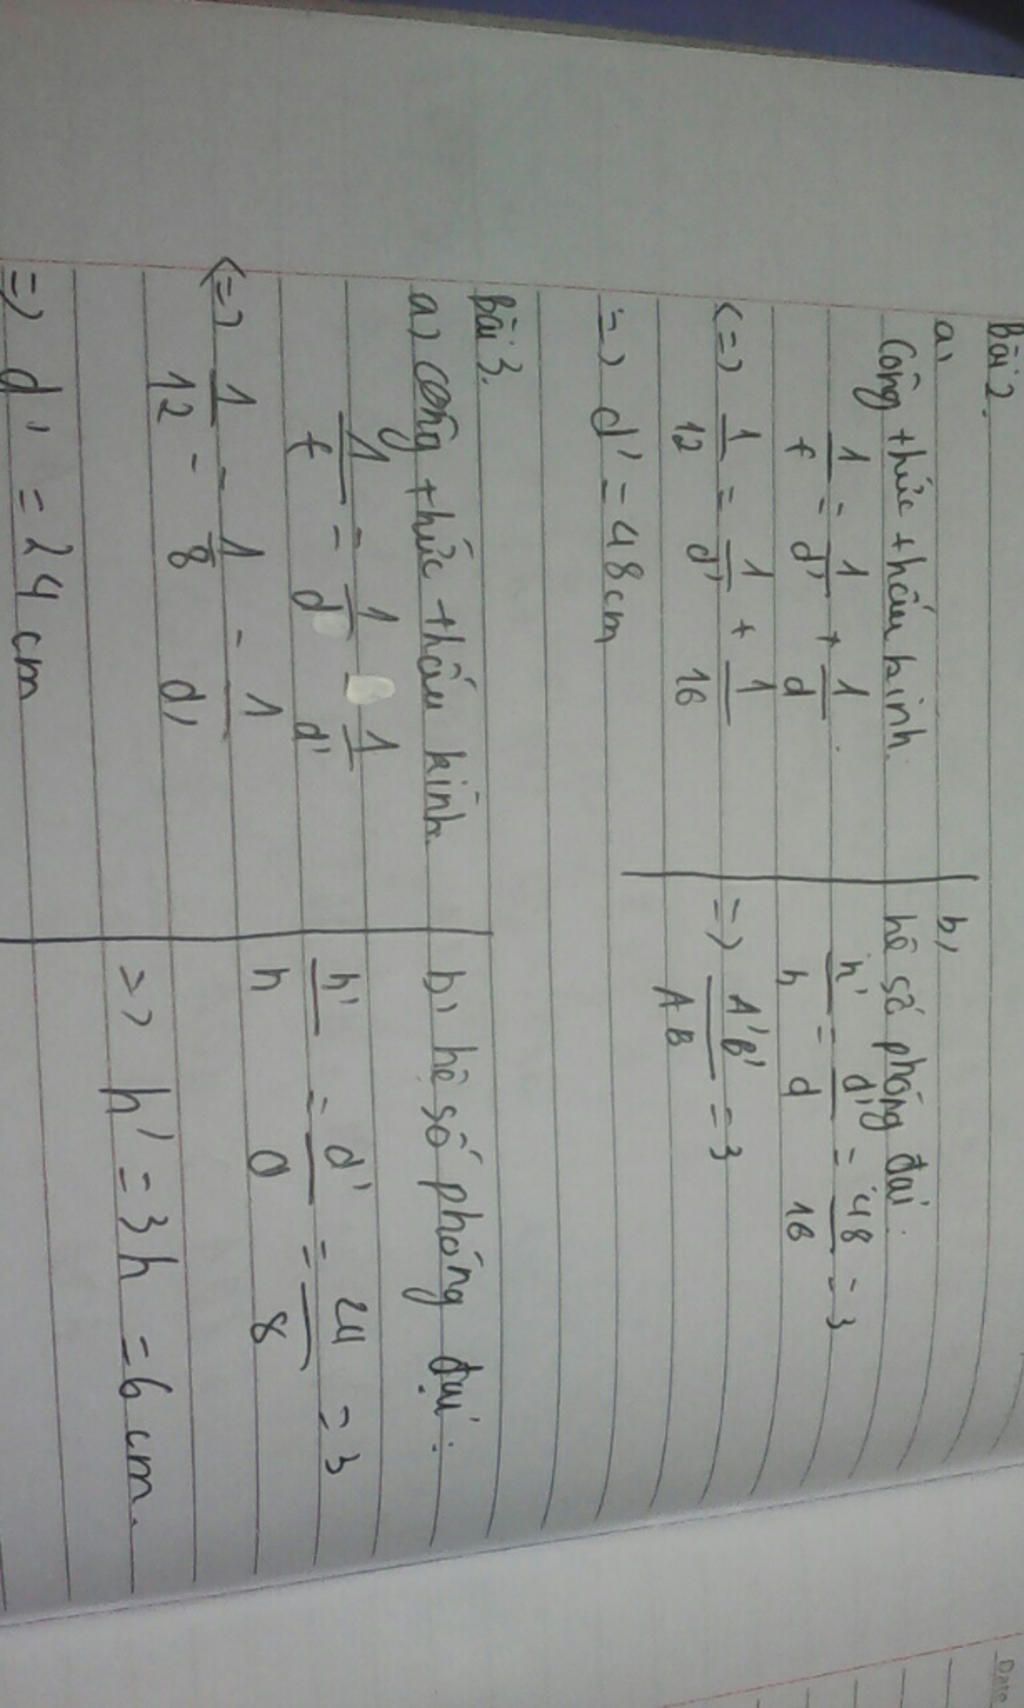 Bài 2.
a,
Công thức thấu kính.
1/f = 1/d' + 1/d
<=> 1/12 = 1/d' + 1/16
=> d' = 48cm
b,
hệ số phóng đại:
h'/h = d'/d = 48/16 = 3
=> A'B'/AB = 3
Bài 3.
a) công thức thấu kính.
1/f = 1/d - 1/d'
<=> 1/12 = 1/8 - 1/d'
=> d' = 24cm
b, hệ số phóng đại:
h'/h = d'/d = 24/8 = 3
=> h' = 3h = 6cm.
Date